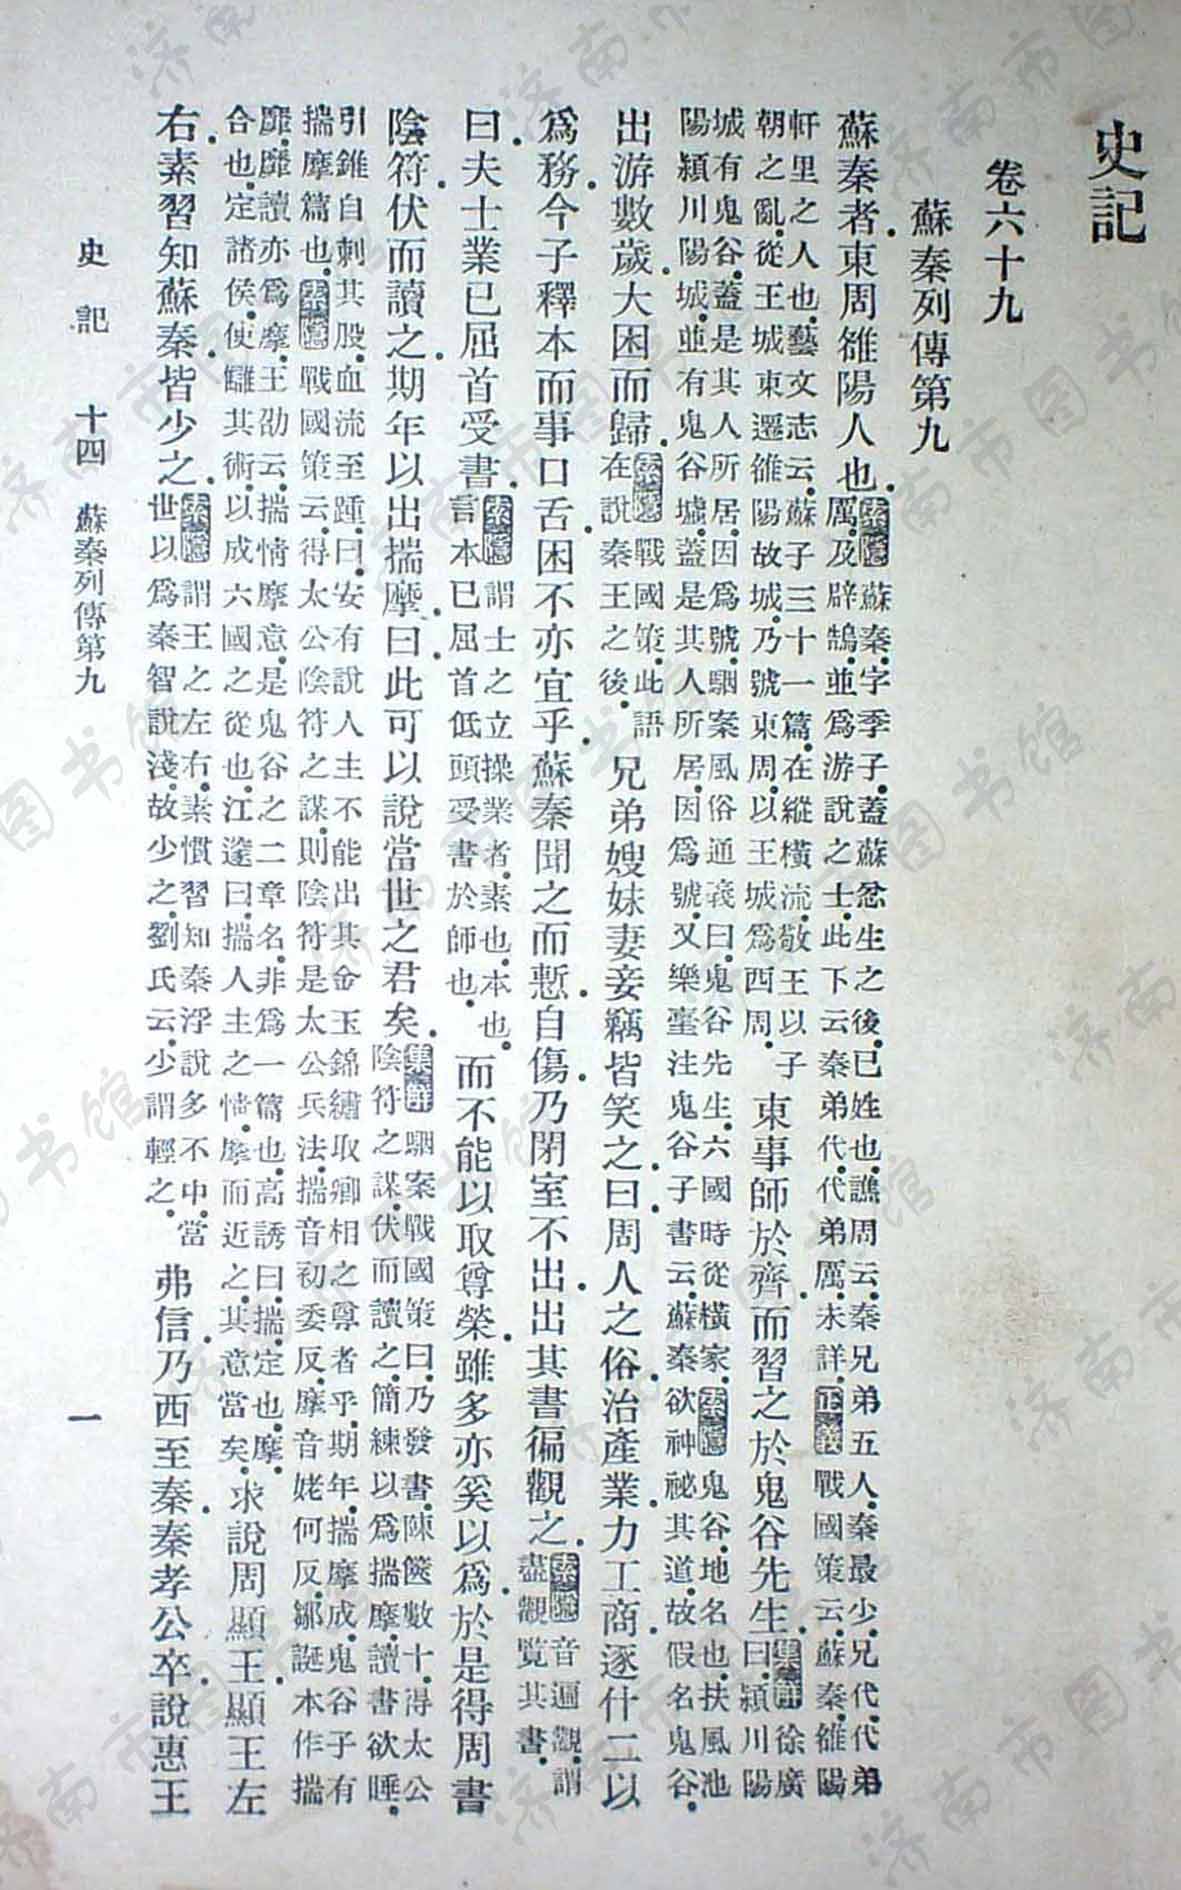 史記
卷六十九
蘇秦列傳第九
蘇秦者．東周雒陽人也．
索隱蘇秦．字季子．蓋蘇忿生之後．已姓也．譙周云．秦兄弟五人．秦最少．兄代．代弟
厲．及辟鵠．並爲游說之士．此下云秦弟代．代弟厲．未詳．正義戰國策云．蘇秦．雒陽
軒里之人也．藝文志云．蘇子三十一篇．在縱橫流．敬王以子
朝之亂．從王城東遷雒陽故城．乃號東周．以王城爲西周．
東事師於齊．而習之於鬼谷先生．
集解徐廣
曰．潁川陽
城有鬼谷．蓋是其人所居．因爲號．駰案風俗通義曰．鬼谷先生．六國時從橫家．索隱鬼谷．地名也．扶風池
陽潁川陽城．並有鬼谷墟．蓋是其人所居．因爲號．又樂臺注鬼谷子書云．蘇秦欲神祕其道．故假名鬼谷．
出游數歲．大困而歸．
索隱戰國策．此語
在說秦王之後．
兄弟嫂妹妻妾竊皆笑之．曰．周人之俗．治產業．力工商．逐什二以
爲務．今子釋本而事口舌．困不亦宜乎．蘇秦聞之而慙．自傷．乃閉室不出．出其書徧觀之．
索隱音遍觀．謂
盡觀覽其書．
曰．夫士業已屈首受書．
索隱謂士之立操業者．素也．本也．
言本已屈首低頭受書於師也．
而不能以取尊榮．雖多亦奚以爲．於是得周書
陰符．伏而讀之．期年以出揣摩．曰．此可以說當世之君矣．
集解駰案戰國策曰．乃發書．陳篋數十．得太公
陰符之謀．伏而讀之．簡練以爲揣摩．讀書欲睡．
引錐自刺其股．血流至踵．曰．安有說人主不能出其金玉錦繡取卿相之尊者乎．期年．揣摩成．鬼谷子有
揣摩篇也．索隱戰國策云．得太公陰符之謀．則陰符是太公兵法．揣音初委反．摩音姥何反．鄒誕本作揣
靡．靡讀亦爲摩．王劭云．揣情摩意．是鬼谷之二章名．非爲一篇也．高誘曰．揣．定也．摩．
合也．定諸侯．使讎其術．以成六國之從也．江邃曰．揣人主之情．摩而近之．其意當矣．
求說周顯王．顯王左
右．素習知蘇秦．皆少之．
索隱謂王之左右．素慣習知秦浮說多不中．當
世以爲秦智說淺．故少之．劉氏云．少謂輕之．
弗信．乃西至秦．秦孝公卒．說惠王
史記 十四 蘇秦列傳第九 一
济南市图书馆